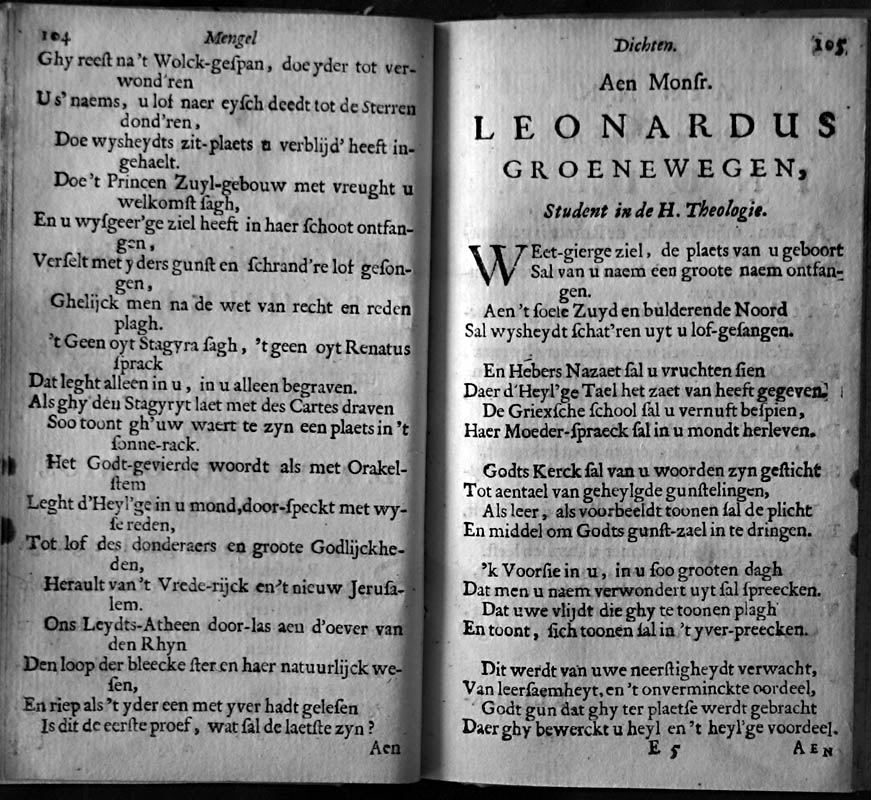 104 Mengel
Ghy reeſt na 't Wolck-geſpan, doe yder tot ver-
wond'ren
Us' naems, u lof naer eyſch deedt tot de Sterren
dond'ren,
Doe wysheydts zit-plaets u verblijd' heeft in-
gehaelt.
Doe 't Princen Zuyl-gebouw met vreught u
welkomſt ſagh,
En u wyſgeer'ge ziel heeft in haer ſchoot ontfan-
gen,
Verſelt met yders gunſt en ſchrand're lof geſon-
gen,
Ghelijck men na de wet van recht en reden
plagh.
't Geen oyt Stagyra ſagh, 't geen oyt Renatus
ſprack
Dat leght alleen in u, in u alleen begraven.
Als ghy den Stagyryt laet met des Cartes draven
Soo toont gh'uw waert te zyn een plaets in 't
ſonne-rack.
Het Godt-gevierde woordt als met Orakel-
ſtem
Leght d'Heyl'ge in u mond, door-ſpeckt met wy-
ſe reden,
Tot lof des donderaers en groote Godlijckhe-
den,
Herault van 't Vrede-rijck en 't nieuw Jeruſa-
lem.
Ons Leydts-Atheen door-las aen d'oever van
den Rhyn
Den loop der bleecke ſter en haer natuurlijck we-
ſen,
En riep als 't yder een met yver hadt geleſen
Is dit de eerſte proef, wat ſal de laetſte zyn?
Aen
Dichten. 105
Aen Monſr.
LEONARDUS
GROENEWEGEN,
Student in de H. Theologie.
WEet-gierge ziel, de plaets van u geboort
Sal van u naem een groote naem ontfan-
gen.
Aen 't ſoele Zuyd en bulderende Noord
Sal wysheydt ſchat'ren uyt u lof-geſangen.
En Hebers Nazaet ſal u vruchten ſien
Daer d'Heyl'ge Tael het zaet van heeft gegeven.
De Griexſche ſchool ſal u vernuft beſpien,
Haer Moeder-ſpraeck ſal in u mondt herleven.
Godts Kerck ſal van u woorden zyn geſticht
Tot aentael van geheylgde gunſtelingen,
Als leer, als voorbeeldt toonen ſal de plicht
En middel om Godts gunſt-zael in te dringen.
'k Voorſie in u, in u ſoo grooten dagh
Dat men u naem verwondert uyt ſal ſpreecken.
Dat uwe vlijdt die ghy te toonen plagh
En toont, ſich toonen ſal in 't yver-preecken.
Dit werdt van uwe neerſtigheydt verwacht,
Van leerſaemheyt, en 't onverminckte oordeel,
Godt gun dat ghy ter plaetſe werdt gebracht
Daer ghy bewerckt u heyl en 't heyl'ge voordeel.
E 5 AEN